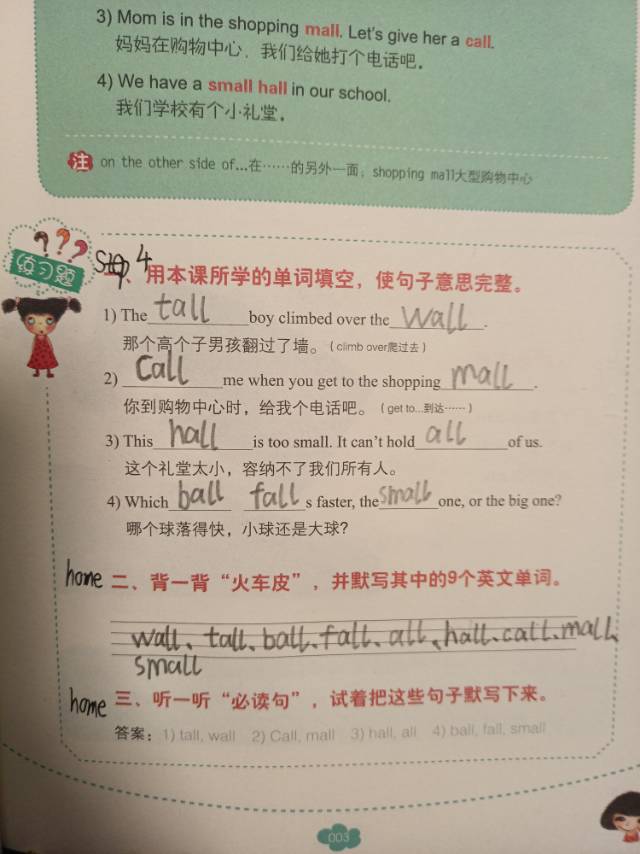 3) Mom is in the shopping mall. Let's give her a call.
妈妈在购物中心，我们给她打个电话吧。
4) We have a small hall in our school.
我们学校有个小礼堂。
注 on the other side of...在……的另外一面，shopping mall大型购物中心
???
练习题
Step 4
一、用本课所学的单词填空，使句子意思完整。
1) The tall boy climbed over the wall.
那个高个子男孩翻过了墙。（climb over爬过去）
2) Call me when you get to the shopping mall.
你到购物中心时，给我个电话吧。（get to...到达……）
3) This hall is too small. It can't hold all of us.
这个礼堂太小，容纳不了我们所有人。
4) Which ball falls faster, the small one, or the big one?
哪个球落得快，小球还是大球？
home 二、背一背“火车皮”，并默写其中的9个英文单词。
wall、tall、ball、fall、all、hall、call、mall、
small
home 三、听一听“必读句”，试着把这些句子默写下来。
答案：1) tall, wall 2) Call, mall 3) hall, all 4) ball, fall, small
003